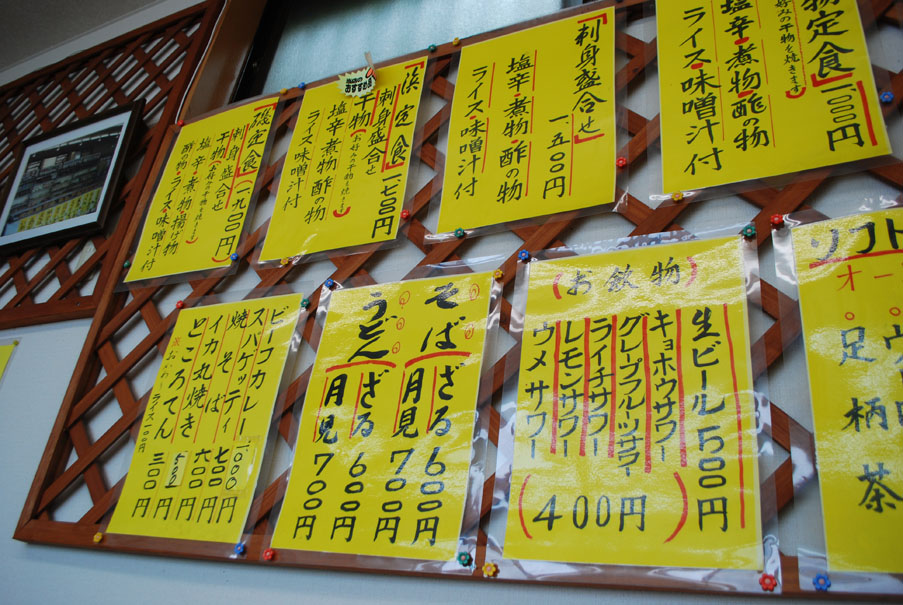 「磯定食」(一、九〇〇円)
刺身盛合せ
干物(お好みの干物を焼きます)
塩辛・煮物・揚げ物
酢の物・ライス味噌汁付
当店の
おすすめ品
「浜定食」一、七〇〇円
刺身盛合せ
干物(お好みの干物を焼きます)
塩辛煮物酢の物
ライス・味噌汁付
「刺身盛合せ」一、五〇〇円
塩辛・煮物・酢の物
ライス・味噌汁付
物定食」一、〇〇〇円
好みの干物を焼きます)
塩辛・煮物酢の物
ライス味噌汁付
ビーフカレー 円
スパゲッティ 七〇〇円
焼そば 六〇〇円
イカ丸焼き 円
ところてん 三〇〇円
ライス 一〇〇円
そば ざる 600円
月見 700円
うどん ざる 600円
月見 700円
(お飲物)
生ビール 500円
キョホウサワー
グレープフルーツサワー
ライチサワー
レモンサワー
ウメサワー
(400円)
ソフト
オー
足柄茶